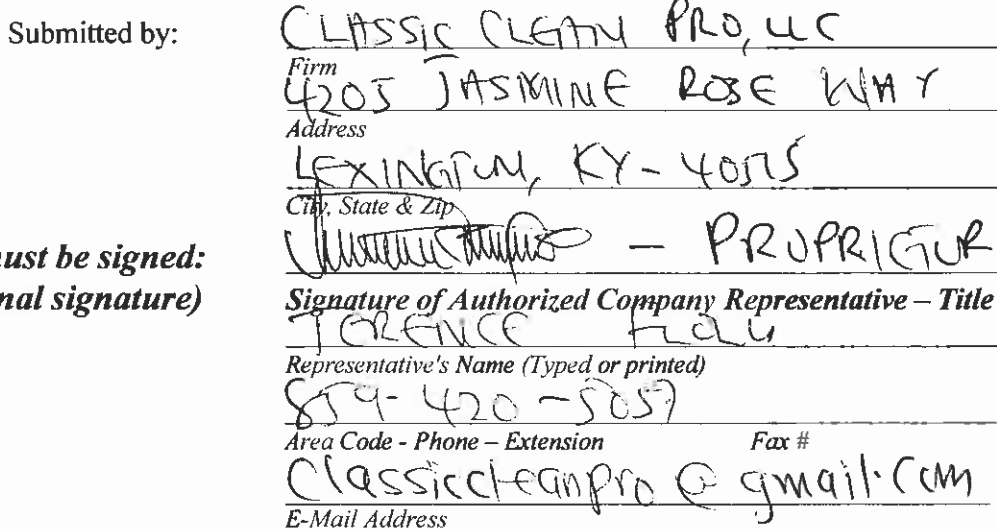 Submitted by: CLASSIC CLEAN PRO, LLC
Firm
4205 JASMINE ROSE WAY
Address
LEXINGTON, KY- 40515
City, State & Zip
must be signed: – PROPRIETOR
nal signature) Signature of Authorized Company Representative – Title
TERENCE
Representative's Name (Typed or printed)
859-420-5057
Area Code - Phone – Extension Fax #
Classiccleanpro @ gmail.com
E-Mail Address